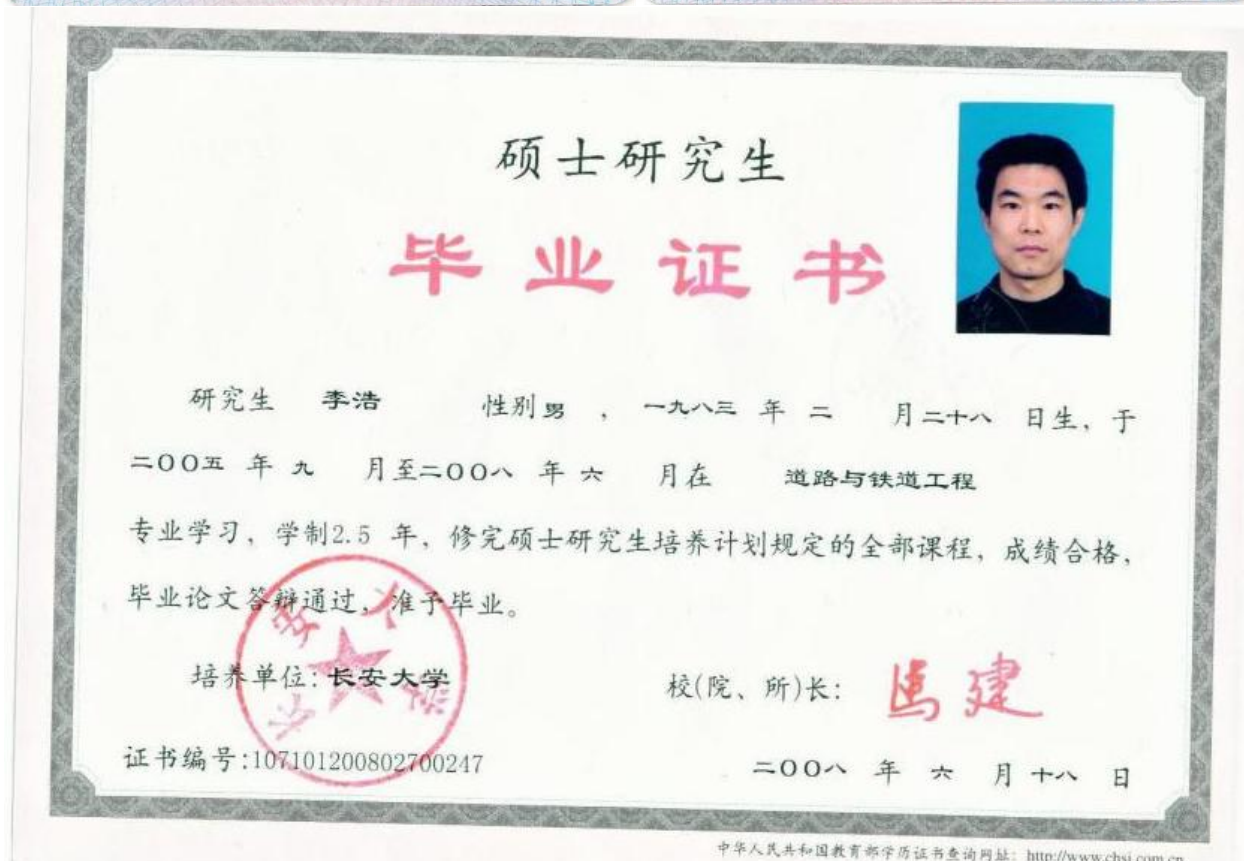 硕士研究生
毕业证书
研究生 李浩 性别男 ， 一九八三 年 二 月二十八 日生，于
二00五 年 九 月至二00八 年 六 月在 道路与铁道工程
专业学习，学制2.5 年，修完硕士研究生培养计划规定的全部课程，成绩合格，
毕业论文答辩通过，准予毕业。
培养单位：长安大学
校(院、所)长：马建
证书编号:107101200802700247
二00八 年 六 月 十八 日
中华人民共和国教育部学历证书查询网址： http://www.chsi.com.cn
长安大学